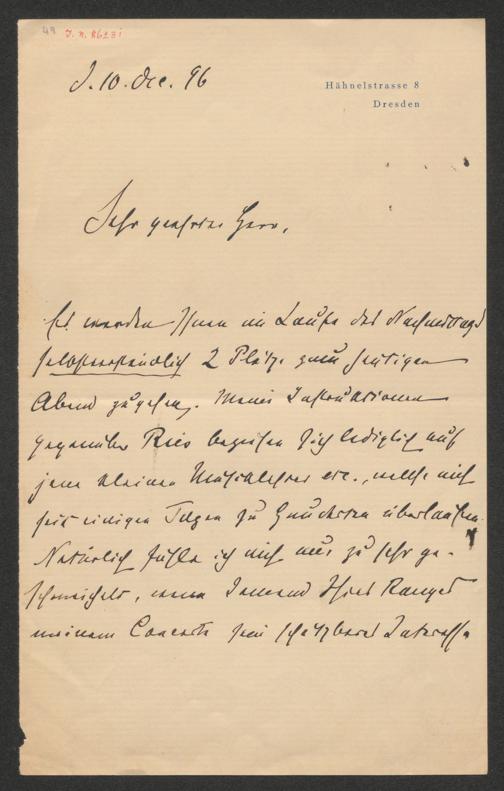 49 I. N. 86231
D. 10. Dec. 96
Hähnelstrasse 8
Dresden
Sehr geehrter Herr,
Es werden Ihnen im Laufe des Nachmittags
selbstverständlich 2 Plätze zum heutigen
Abend zugehen. Meine Instruktionen
gegenüber Ries beziehen sich lediglich auf
jene kleinen Musiklehrer etc., welche mich
seit einigen Tagen zu Hunderten überlaufen.
Natürlich fühle ich mich nur zu sehr ge-
schmeichelt, wenn Jemand Ihres Ranges
meinem Concerte sein schätzbares Interesse